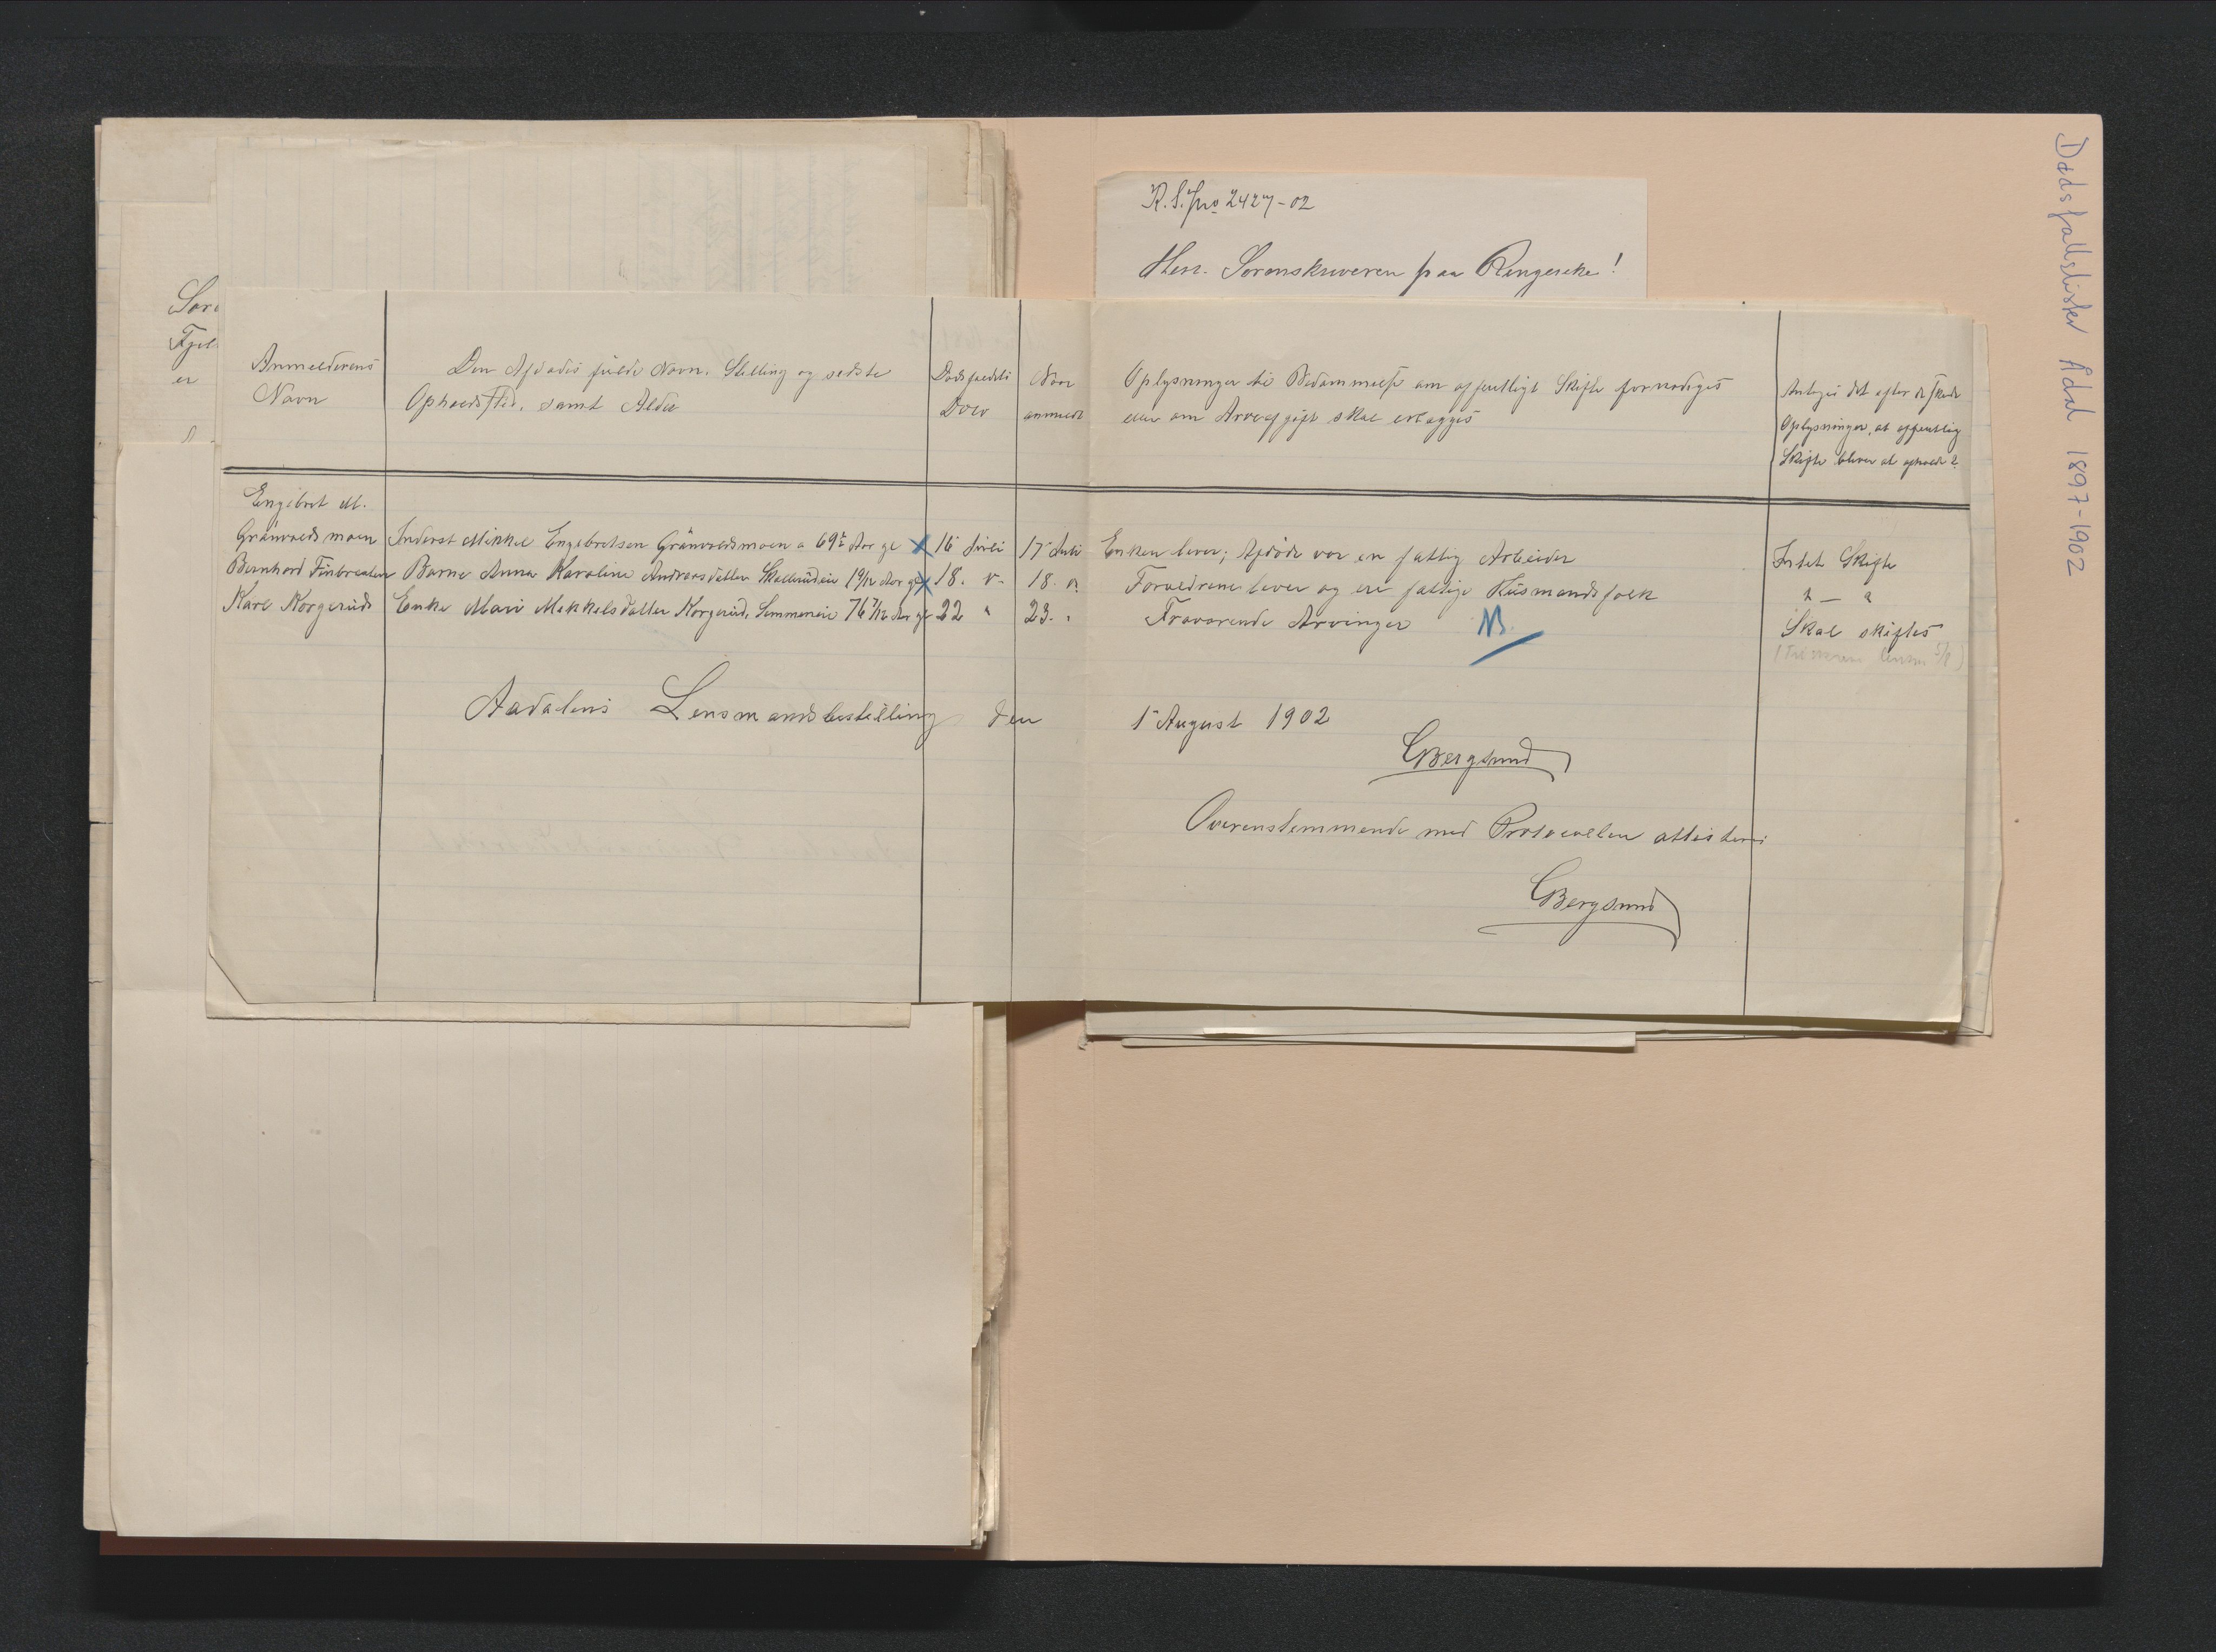 Dødsfallslister Ådal 1897-1902
R.S. Jno 2427-02
Herr. Sorenskriveren paa Ringerike!
Anmelderens
Navn
Den Afdødes fulde Navn, Stilling og sidste
Opholdssted, samt Alder
Dødsfaldets
Dato
Naar
anmeldt
Oplysninger til Bedømmelse om offentligt Skifte fornødiges
eller om Arveafgift skal erlægges
Antages det efter de skede
Oplysninger, at offentlig
Skifte bliver at afholde?
Engebret M.
Grånvoldsmoen Inderst Mikkel Engebretsen Grånvoldsmoen 69 Aar gl 16 Juli 17 Juli Enken lever; Afdøde var en fattig Arbeider Intet Skifte
Bernhard Finbraaten Barne Anna Karoline Andreasdatter Skollerudeie 19/12 Aar gl 18. " 18. " Forældrene lever og ere fattige Husmandsfolk " — "
Karl Korgerud Enke Mari Mekkelsdatter Korgerud, Semmeneie 76 7/12 Aar gl 22 " 23. " Fraværende Arvinger NB. Skal skiftes
Aadalens Lensmandsbestilling den 1 August 1902
CBergsund
Overensstemmende med Protocollen attesteres
CBergsund